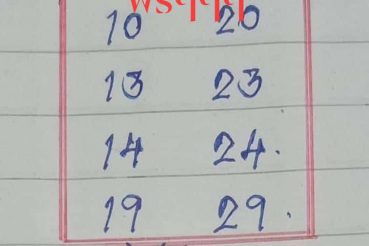 10 20
13 23
14 24.
19 29.